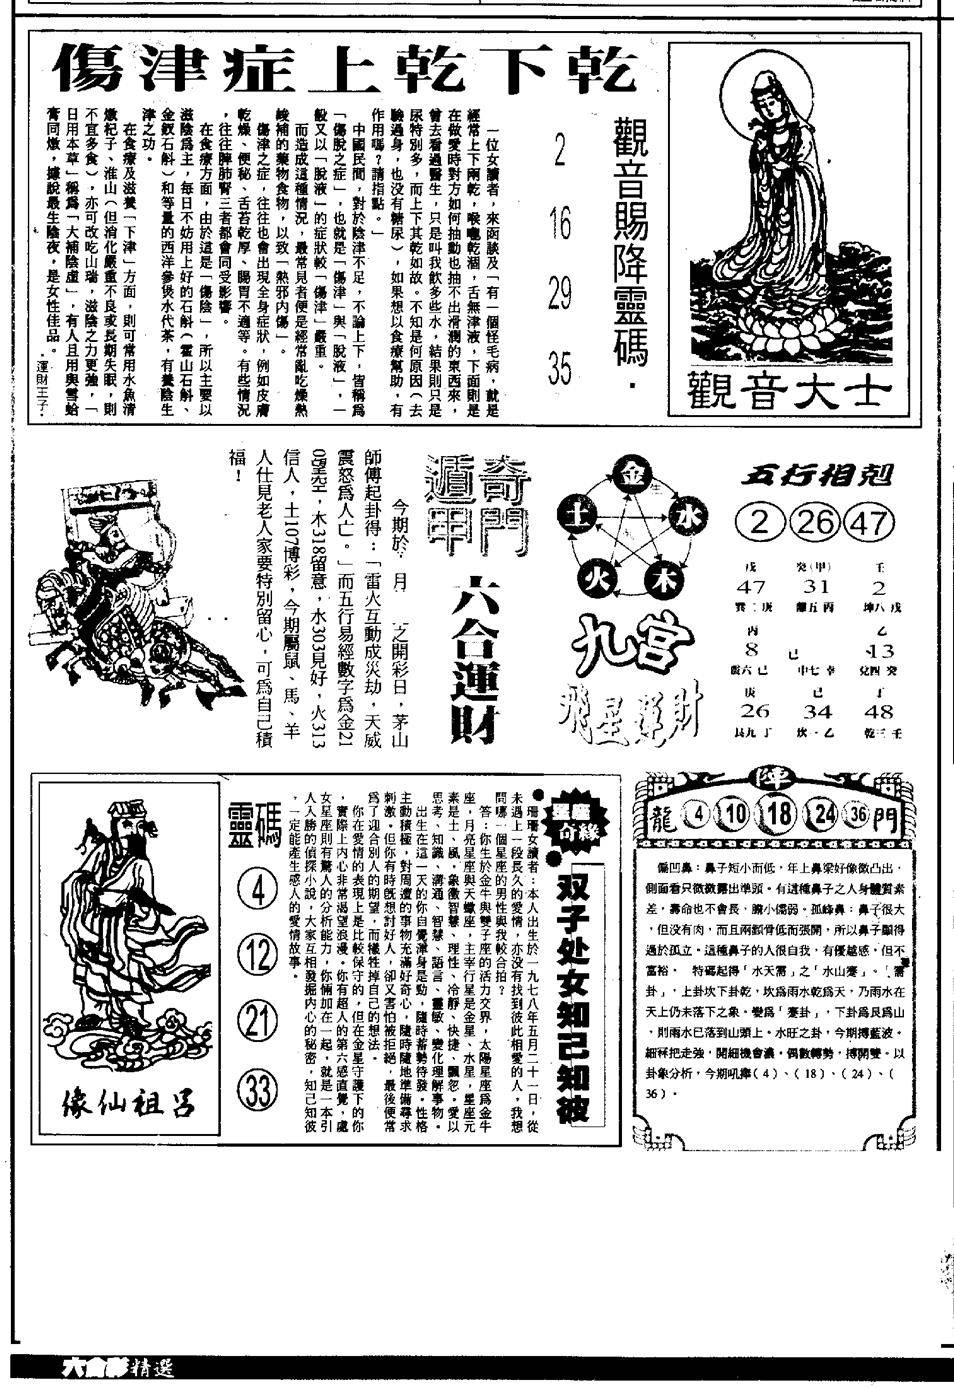 傷津症上乾下乾
一位女讀者，來函談及「有一個怪毛病，就是
經常上下兩乾，喉嚨乾涸，舌無津液，下面則是
在做愛時對方如何抽動也抽不出滑潤的東西來，
曾去看過醫生，只是叫我飲多些水，結果則只是
尿特別多，而上下其乾如故。不知是何原因（去
驗過身，也没有糖尿），如果想以食療幫助，有
作用嗎？請指點。」
中國民間，對於陰津不足，不論上下，皆稱爲
「傷脫之症」，也就是「傷津」與「脫液」，一
般又以「脫液」的症狀較「傷津」嚴重。
而造成這種情況，最常見者便是經常亂吃燥熱
峻補的藥物食物，以致「熱邪内傷」。
傷津之症，往往也會出現全身症狀，例如皮膚
乾燥、便秘、舌苔乾厚、腸胃不適等。有些情況
，往往脾肺腎三者都會同受影響。
在食療方面，由於這是「傷陰」，所以主要以
滋陰爲主，每日不妨用上好的石斛（霍山石斛、
金釵石斛）和等量的西洋參煲水代茶，有養陰生
津之功。
在食療及滋養「下津」方面，則可常用水魚清
燉杞子、淮山（但消化嚴重不良或長期失眠，則
不宜多食），亦可改吃山瑞，滋陰之力更強，「
日用本草」稱爲「大補陰虛」，有人且用與雪蛤
膏同燉，據說最生陰夜，是女性佳品。
·運財王子·
觀音賜降靈碼·
2
16
29
35
觀音大士
奇門
遁甲
六合運財
今期於 月 之開彩日，茅山
師傅起卦得：「雷火互動成災劫，天威
震怒爲人亡。」而五行易經數字爲金21
05呈空，木318留意，水303見好，火313
信人，土107博彩，今期屬鼠、馬、羊
人仕見老人家要特別留心，可爲自己積
福！
金生
水
木
火
土
九宮
飛星運財
五行相剋
2 26 47
戊 癸(甲) 壬
47 31 2
巽二庚 離五丙 坤八戊
丙 乙
8 己 13
震六己 中七辛 兌四癸
庚 己 丁
26 34 48
艮九丁 坎一乙 乾三壬
呂祖仙像
靈碼
4
12
21
33
星座奇緣
双子处女知己知彼
珊珊女讀者：本人出生於一九七八年五月二十一日，從
未遇上一段長久的愛情，亦没有找到彼此相愛的人，我想
問哪一個星座的男性與我較合拍？
答：你生於金牛與雙子座的活力交界，太陽星座爲金牛
座，月亮星座與天蠍座，主宰行星是金星、水星，星座元
素是土、風，象徵智慧、理性、冷靜、快捷、飄忽。愛以
思考、知識、溝通、智慧、語言、靈敏、變化理解事物。
出生在這一天的你自覺渾身是勁，隨時蓄勢待發。性格
主動積極，對周遭的事物充滿好奇心，隨時隨地準備尋求
刺激。但你有時既想討好人，卻又害怕被拒絕，最後便常
爲了迎合別人的期望，而犧牲掉自己的想法。
你在愛情的表現上是比較保守的，但在金星守護下的你
，實際上内心非常渴望浪漫。你有超人的第六感直覺，處
女星座則有驚人的分析能力，你倆加在一起，就是一本引
人入勝的偵探小說，大家互相發掘内心的秘密，知己知彼
，一定能產生感人的愛情故事。
陣
龍 4 10 18 24 36 門
偏凹鼻：鼻子短小而低，年上鼻梁好像微凸出，
側面看只微微露出準頭。有這種鼻子之人身體質素
差，壽命也不會長，膽小懦弱。孤峰鼻：鼻子很大
，但没有肉，而且兩顴骨低而張開，所以鼻子顯得
過於孤立。這種鼻子的人很自我，有優越感，但不
富裕。 特碼起得「水天需」之「水山蹇」。「需
卦」，上卦坎下卦乾，坎爲雨水乾爲天，乃雨水在
天上仍未落下之象。變爲「蹇卦」，下卦爲艮爲山
，則雨水已落到山頭上。水旺之卦，今期搏藍波。
細冧把走強，開細機會濃。偶數轉勢，搏開雙。以
卦象分析，今期吼捧（4）、（18）、（24）、（
36）。
六合彩精選